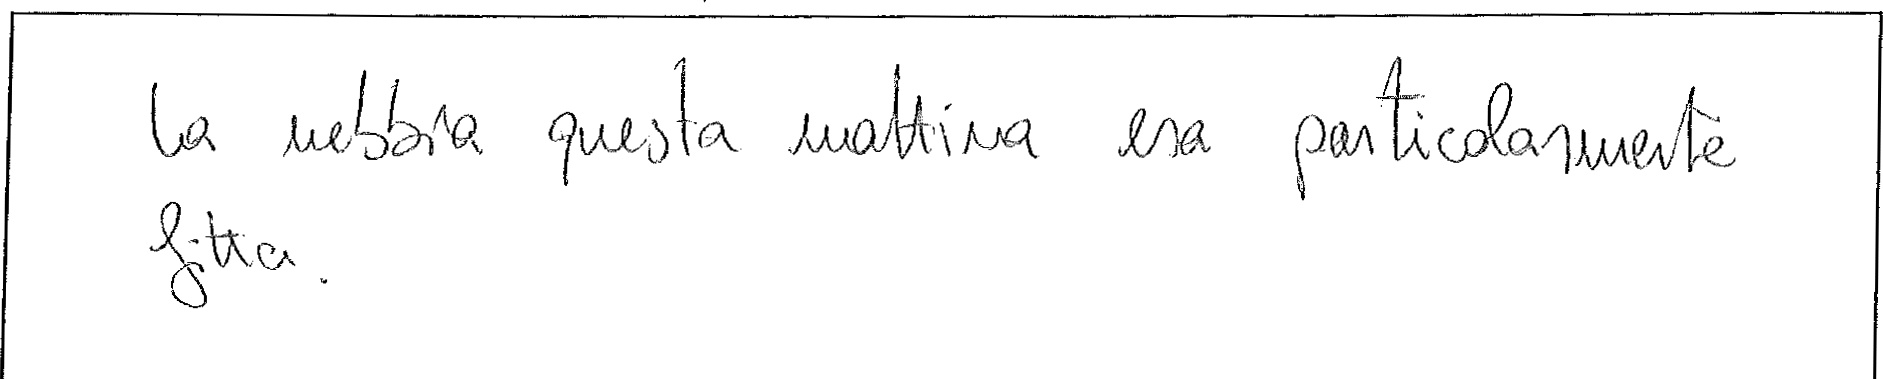 La nebbia questa mattina era particolarmente
fitta.